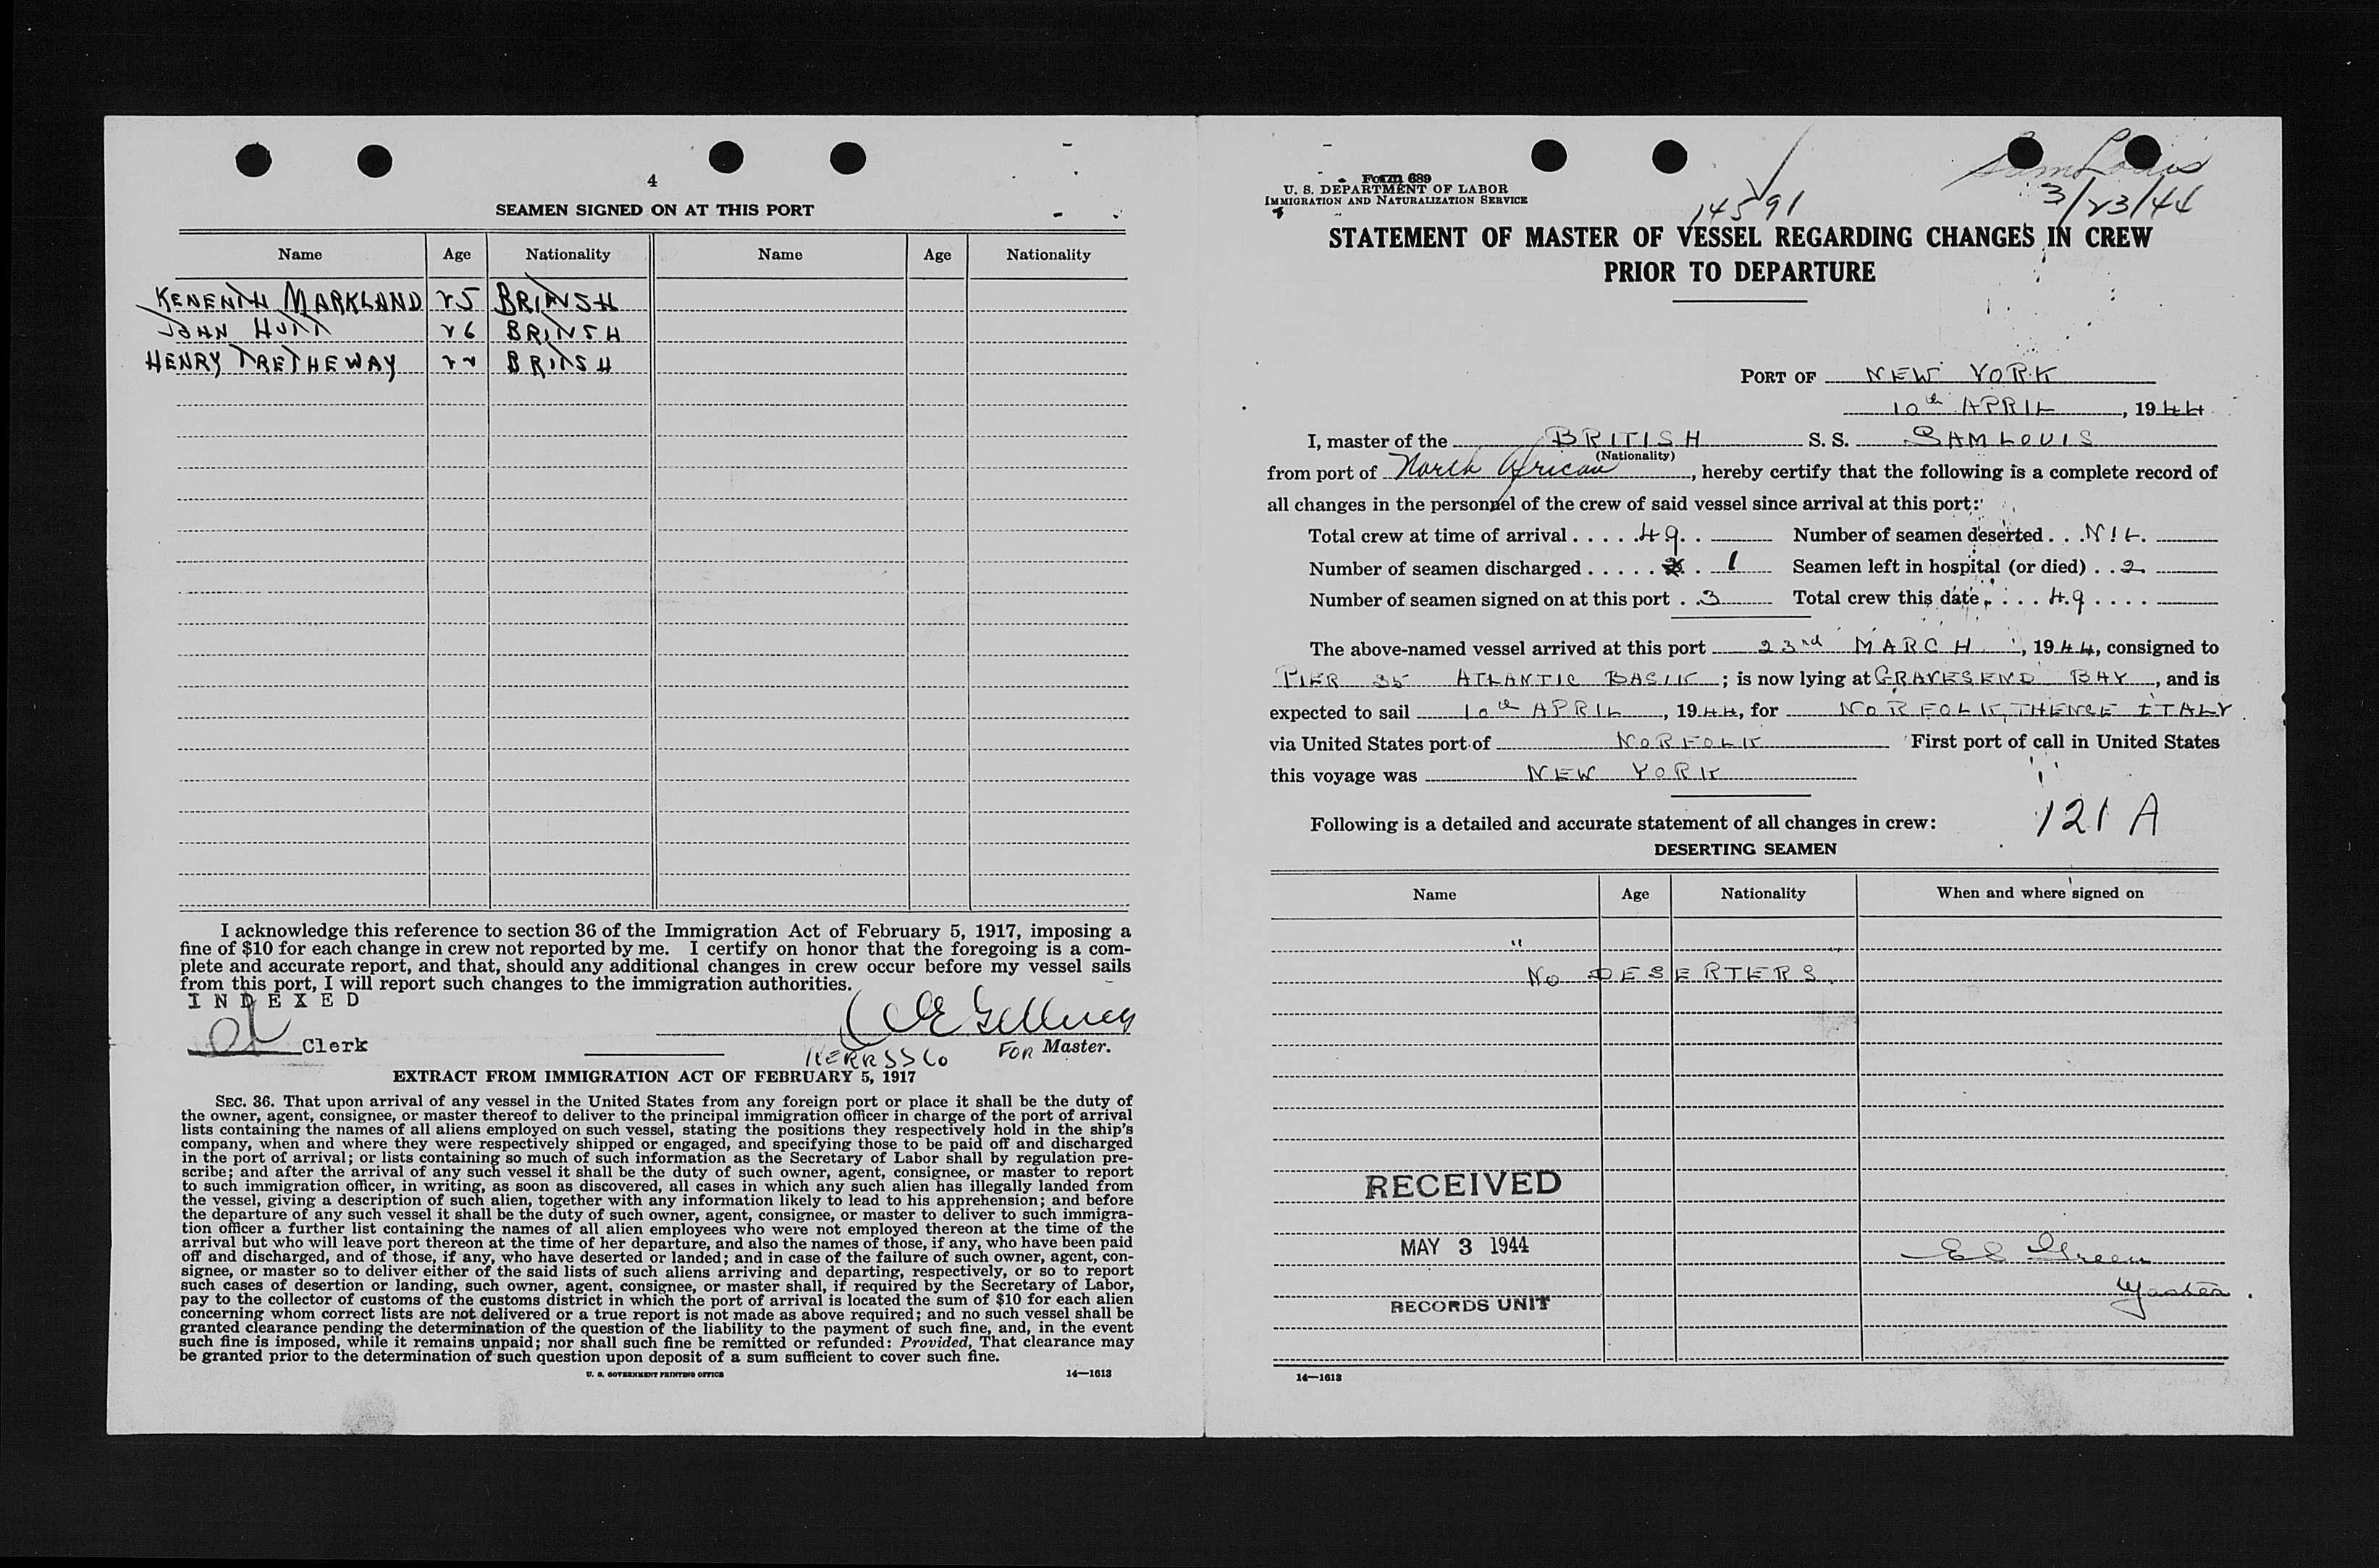 4
SEAMEN SIGNED ON AT THIS PORT
Name Age Nationality Name Age Nationality
KENENTH MARKLAND 25 BRITISH
JOHN HUTT 26 BRITISH
HENRY TRETHEWAY 22 BRITISH
I acknowledge this reference to section 36 of the Immigration Act of February 5, 1917, imposing a
fine of $10 for each change in crew not reported by me. I certify on honor that the foregoing is a com-
plete and accurate report, and that, should any additional changes in crew occur before my vessel sails
from this port, I will report such changes to the immigration authorities.
INDEXED
Clerk
KERR SS Co FOR Master.
EXTRACT FROM IMMIGRATION ACT OF FEBRUARY 5, 1917
SEC. 36. That upon arrival of any vessel in the United States from any foreign port or place it shall be the duty of
the owner, agent, consignee, or master thereof to deliver to the principal immigration officer in charge of the port of arrival
lists containing the names of all aliens employed on such vessel, stating the positions they respectively hold in the ship's
company, when and where they were respectively shipped or engaged, and specifying those to be paid off and discharged
in the port of arrival; or lists containing so much of such information as the Secretary of Labor shall by regulation pre-
scribe; and after the arrival of any such vessel it shall be the duty of such owner, agent, consignee, or master to report
to such immigration officer, in writing, as soon as discovered, all cases in which any such alien has illegally landed from
the vessel, giving a description of such alien, together with any information likely to lead to his apprehension; and before
the departure of any such vessel it shall be the duty of such owner, agent, consignee, or master to deliver to such immigra-
tion officer a further list containing the names of all alien employees who were not employed thereon at the time of the
arrival but who will leave port thereon at the time of her departure, and also the names of those, if any, who have been paid
off and discharged, and of those, if any, who have deserted or landed; and in case of the failure of such owner, agent, con-
signee, or master so to deliver either of the said lists of such aliens arriving and departing, respectively, or so to report
such cases of desertion or landing, such owner, agent, consignee, or master shall, if required by the Secretary of Labor,
pay to the collector of customs of the customs district in which the port of arrival is located the sum of $10 for each alien
concerning whom correct lists are not delivered or a true report is not made as above required; and no such vessel shall be
granted clearance pending the determination of the question of the liability to the payment of such fine, and, in the event
such fine is imposed, while it remains unpaid; nor shall such fine be remitted or refunded: Provided, That clearance may
be granted prior to the determination of such question upon deposit of a sum sufficient to cover such fine.
U. S. GOVERNMENT PRINTING OFFICE 14—1613
Form 689
U. S. DEPARTMENT OF LABOR
IMMIGRATION AND NATURALIZATION SERVICE
Sam Louis
3/23/44
14591
STATEMENT OF MASTER OF VESSEL REGARDING CHANGES IN CREW
PRIOR TO DEPARTURE
PORT OF NEW YORK
10th APRIL, 1944
I, master of the BRITISH S. S. SAMLOUIS
(Nationality)
from port of North African, hereby certify that the following is a complete record of
all changes in the personnel of the crew of said vessel since arrival at this port:
Total crew at time of arrival . . . . . 49 . . Number of seamen deserted . . . NIL.
Number of seamen discharged . . . . . . 1 Seamen left in hospital (or died) . . 2
Number of seamen signed on at this port . . 3 Total crew this date . . . . 49 . . . .
The above-named vessel arrived at this port 23rd MARCH, 1944, consigned to
PIER 35 ATLANTIC BASIN; is now lying at GRAVESEND BAY, and is
expected to sail 10th APRIL, 1944, for NORFOLK, THENCE ITALY
via United States port of NORFOLK First port of call in United States
this voyage was NEW YORK
Following is a detailed and accurate statement of all changes in crew:
121 A
DESERTING SEAMEN
Name Age Nationality When and where signed on
NO DESERTERS
RECEIVED
MAY 3 1944
RECORDS UNIT
E S Green
Master.
14—1613